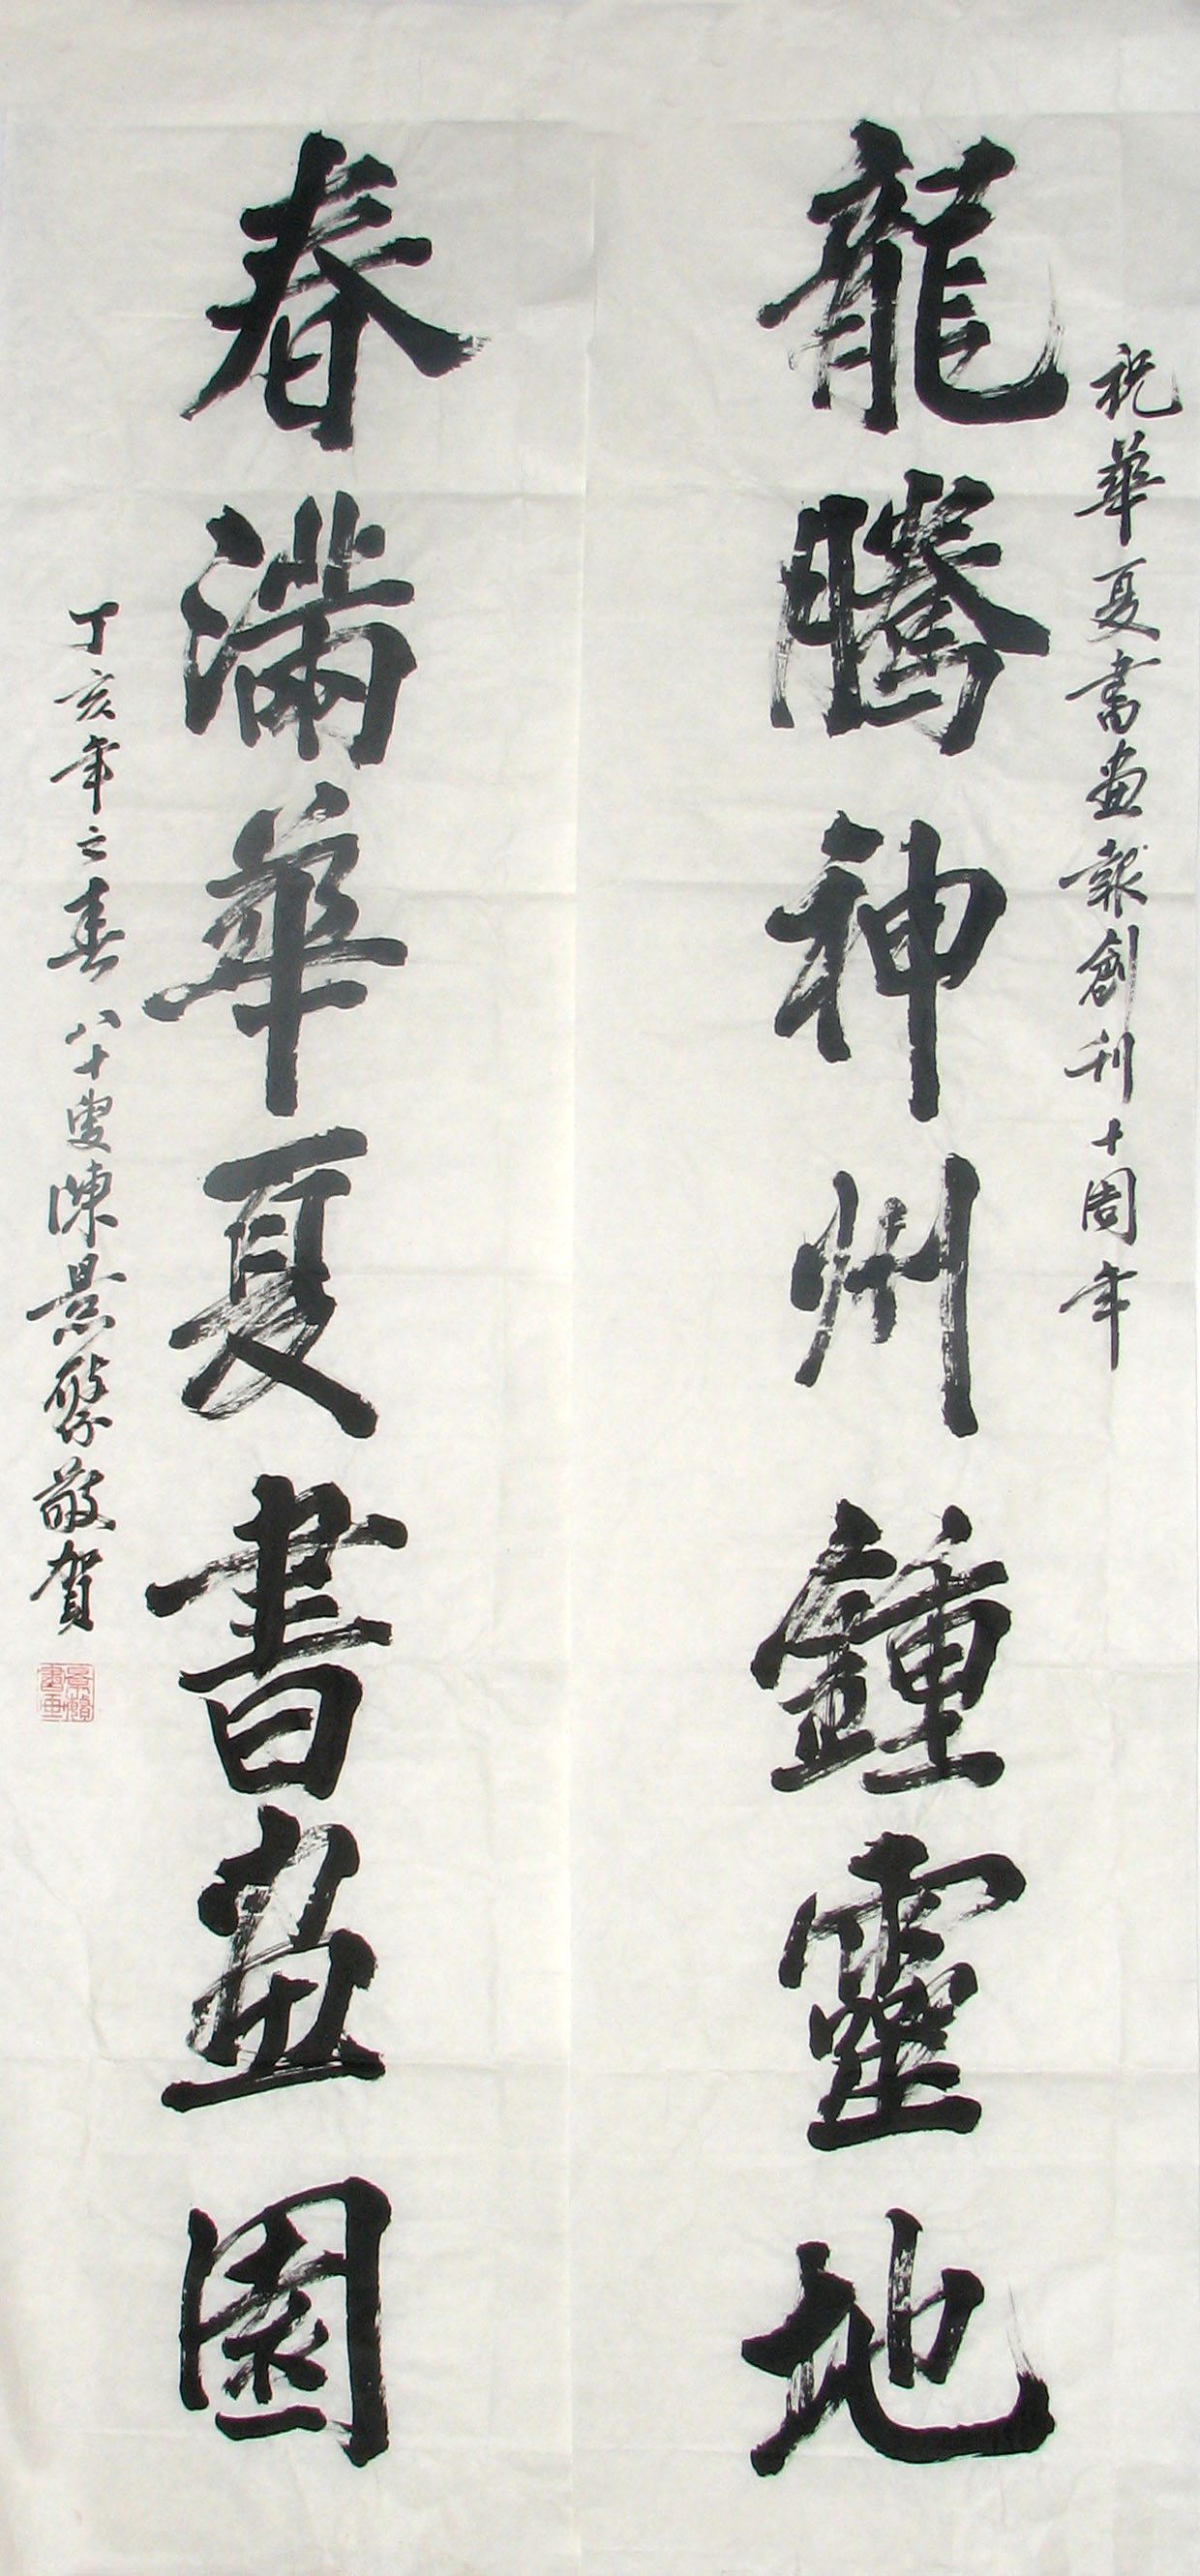 祝華夏書畫報創刊十周年
龍騰神州鍾靈地
春滿華夏書畫園
丁亥年之春 八十叟陳景繁敬賀